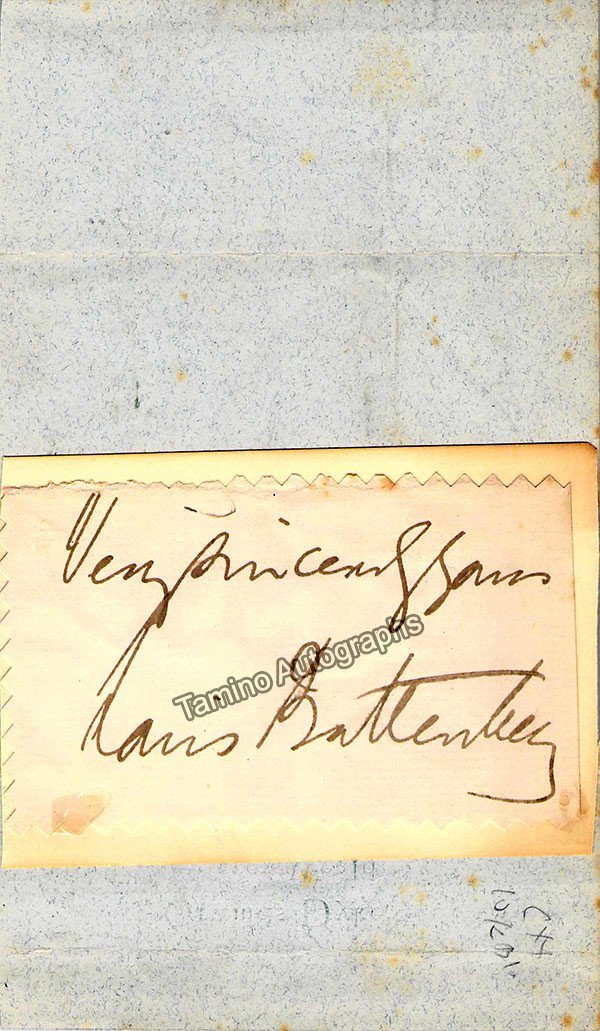 Very sincerely yours
Louis Battenberg
Tamino Autographs